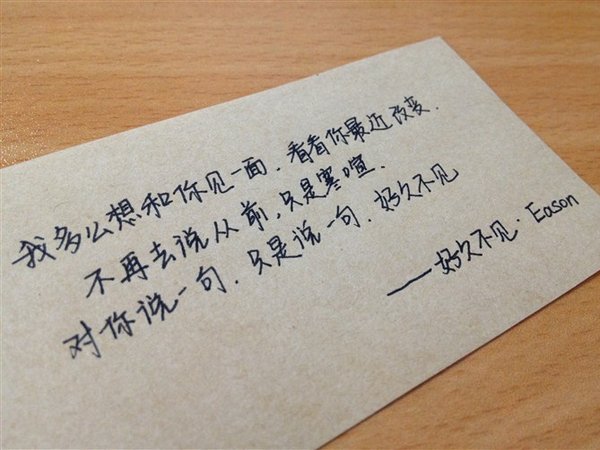 我多么想和你见一面．看看你最近改变．
不再去说从前，只是寒喧．
对你说一句．只是说一句．好久不见
——好久不见·Eason